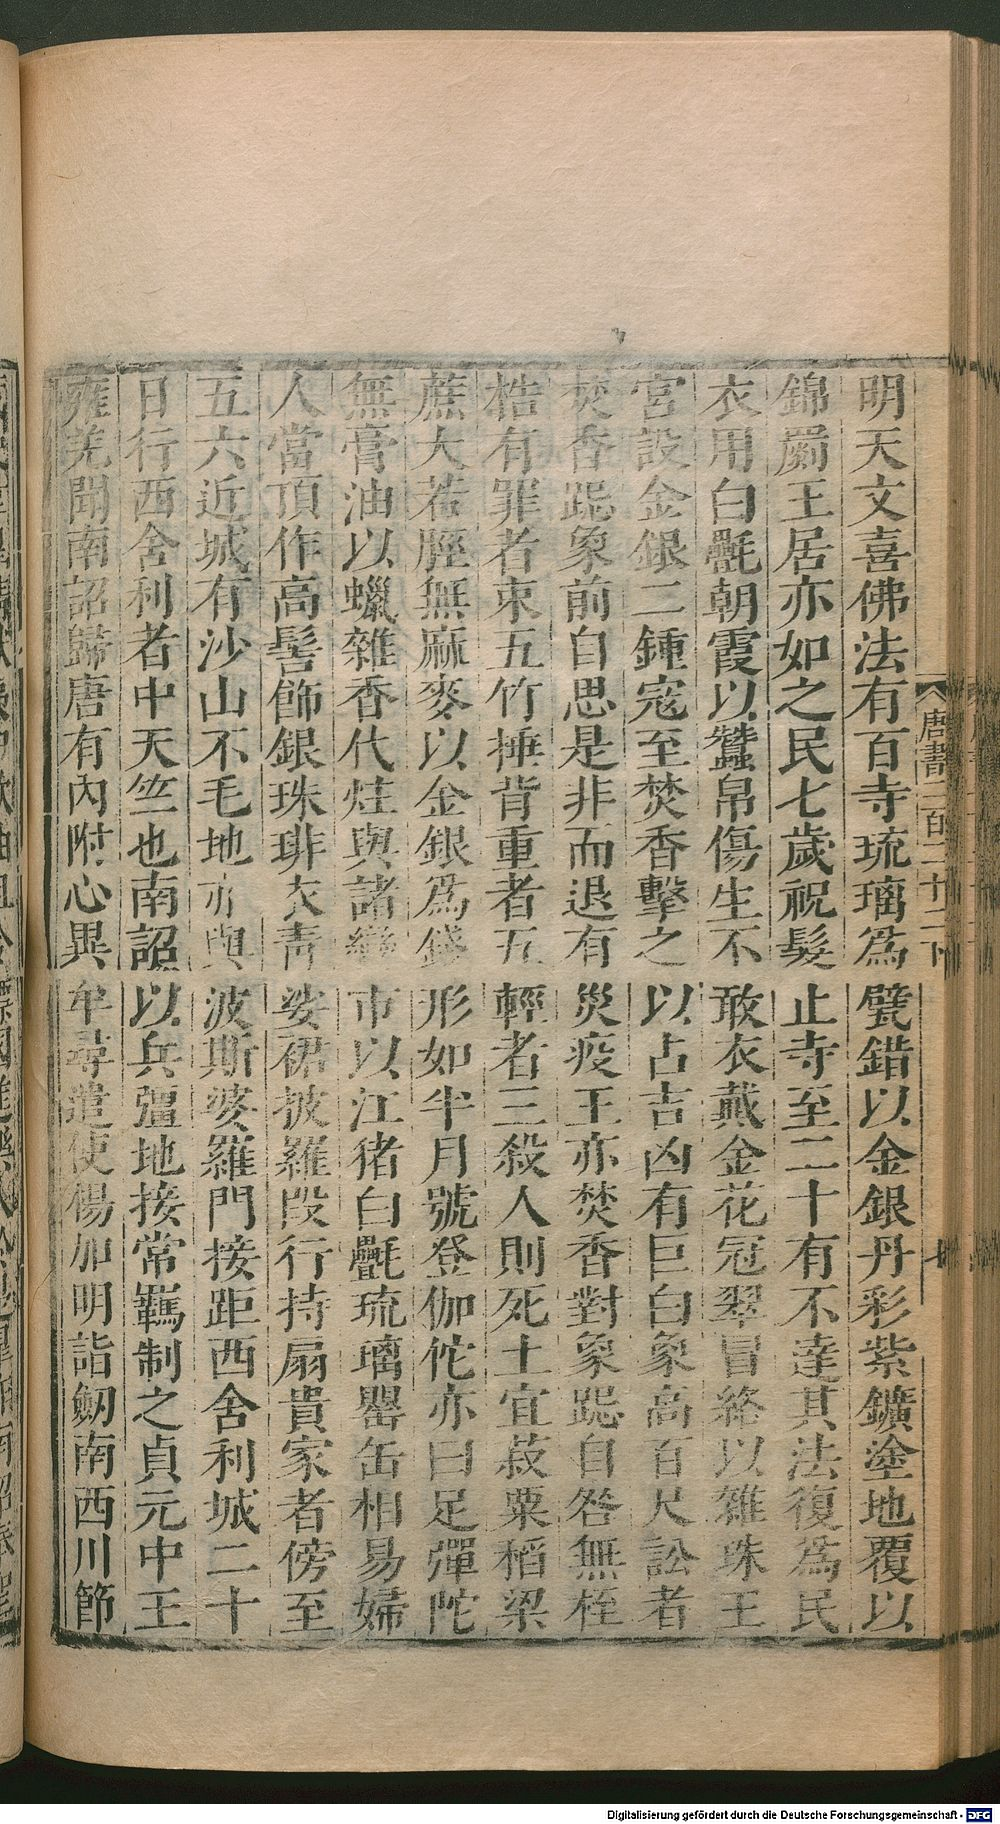 明天文喜佛法有百寺琉璃爲甓錯以金銀丹彩紫鑛塗地覆以
錦罽王居亦如之民七歲祝髮止寺至二十有不達其法復爲民
衣用白氎朝霞以蠶帛傷生不敢衣戴金花冠翠冒絡以雜珠王
宮設金銀二鍾寇至焚香擊之以占吉凶有巨白象高百尺訟者
焚香跽象前自思是非而退有災疫王亦焚香對象跽自咎無桎
梏有罪者束五竹捶背重者五輕者三殺人則死土宜菽粟稻粱
蔗大若脛無麻麥以金銀爲錢形如半月號登伽佗亦曰足彈陀
無膏油以蠟雜香代炷與諸蠻市以江猪白氎琉璃罌缶相易婦
人當頂作高髻飾銀珠琲衣青娑裙披羅段行持扇貴家者傍至
五六近城有沙山不毛地亦與波斯婆羅門接距西舍利城二十
日行西舍利者中天竺也南詔以兵彊地接常羈制之貞元中王
雍羌聞南詔歸唐有內附心異牟尋遣使楊加明詣劒南西川節
唐書二百二十二下
七
Digitalisierung gefördert durch die Deutsche Forschungsgemeinschaft - DFG